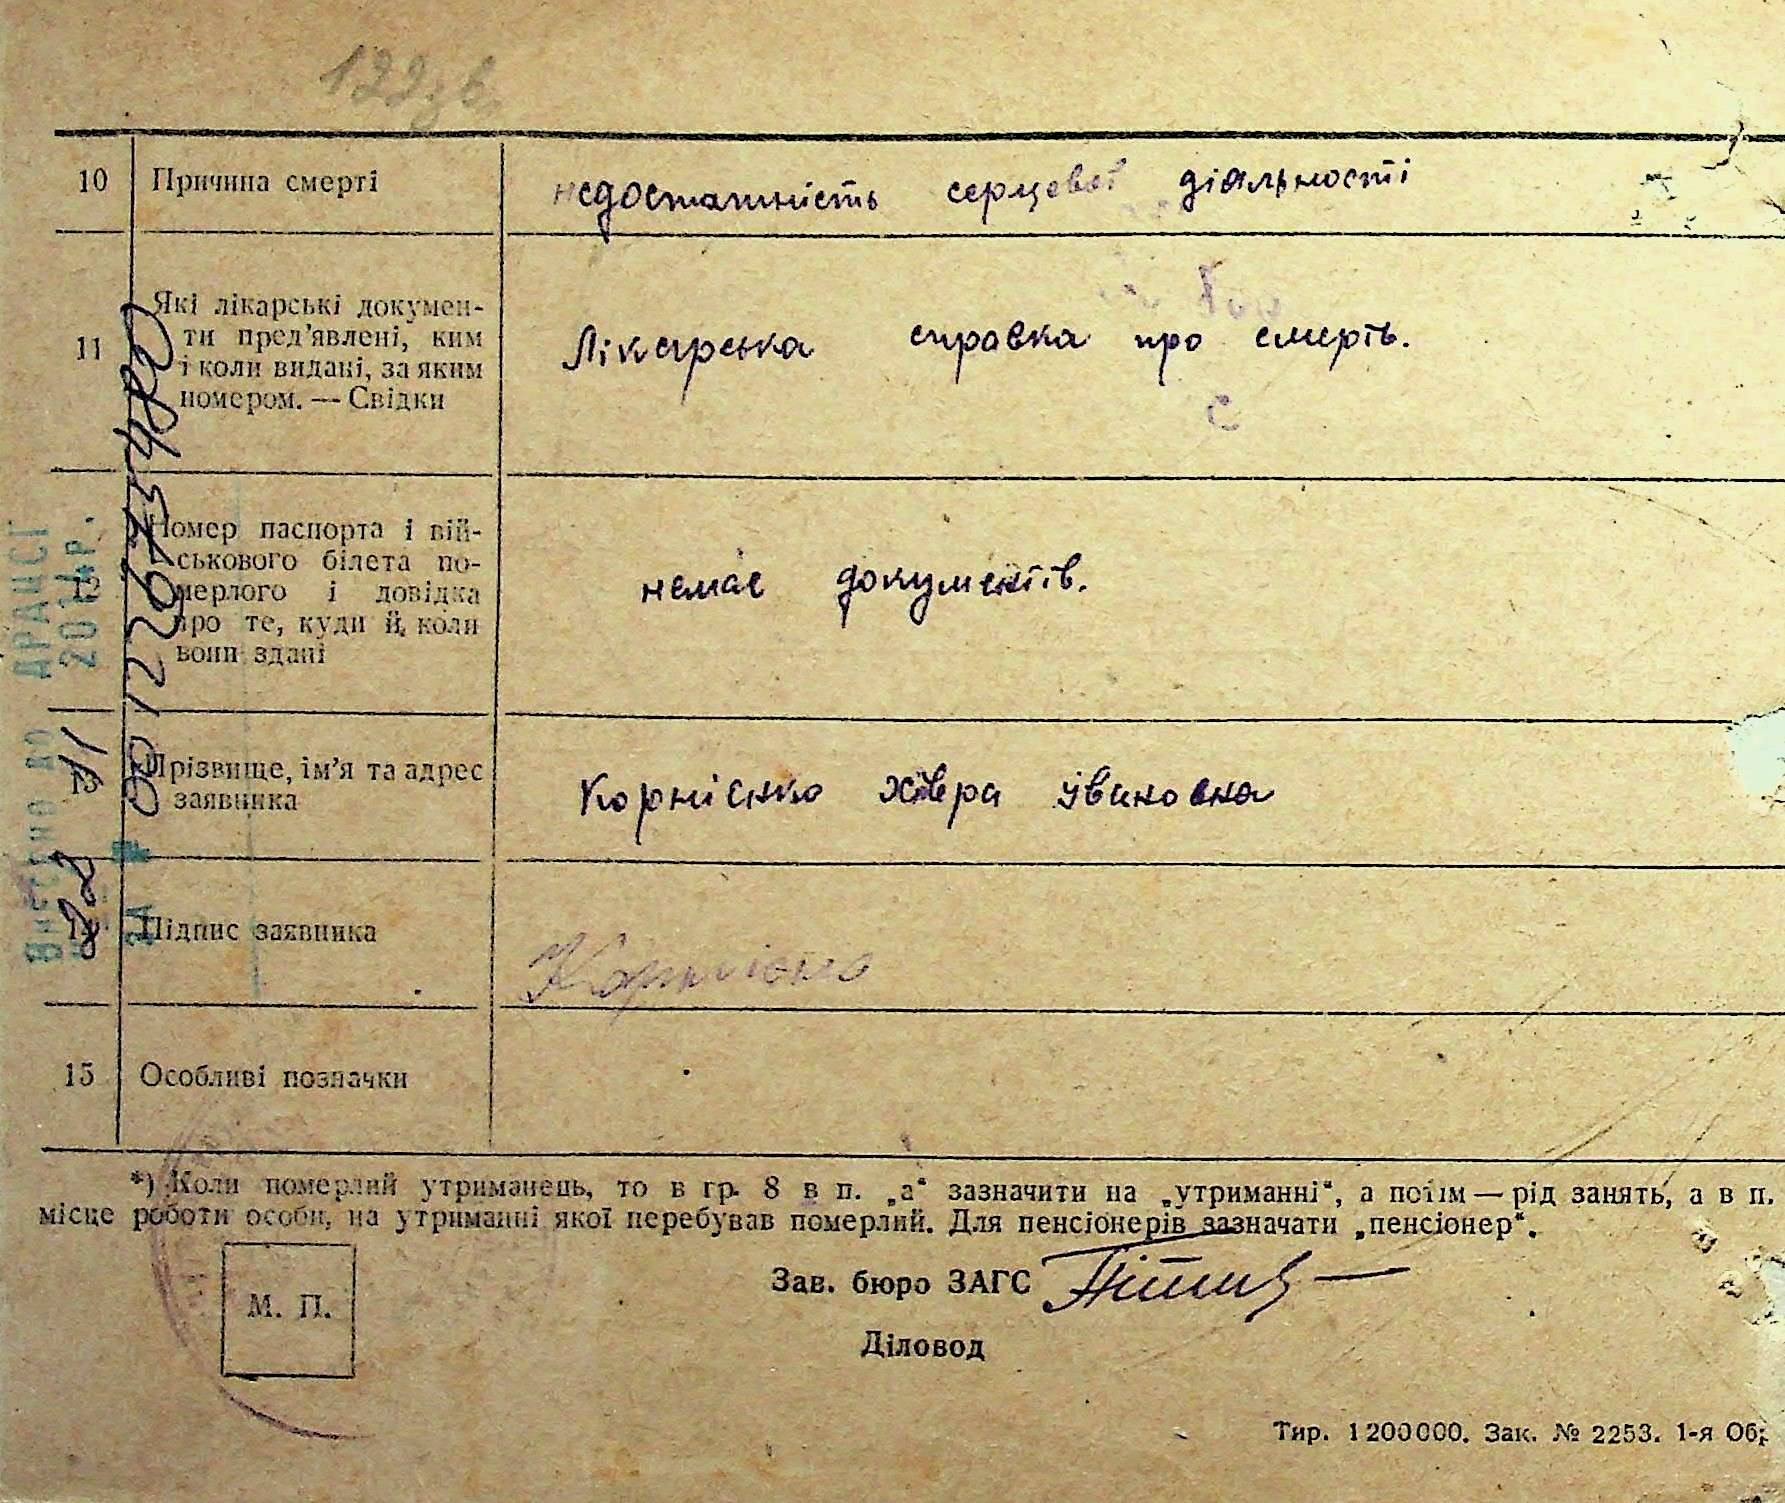 122зв.
10 Причина смерті недостатність серцевої діяльності
Які лікарські докумен-
ти пред'явлені, ким
11 і коли видані, за яким Лікарська справка про смерть.
номером. — Свідки
Номер паспорта і вій-
ськового білета по-
12 мерлого і довідка немає документів.
про те, куди й коли
вони здані
13 Прізвище, ім'я та адрес Корнієнко Хівра Івановна
заявника
14 Підпис заявника Корнієнко
15 Особливі позначки
*) Коли померлий утриманець, то в гр. 8 в п. „а“ зазначити на „утриманні“, а потім — рід занять, а в п.
місце роботи особи, на утриманні якої перебував померлий. Для пенсіонерів зазначати „пенсіонер“.
Зав. бюро ЗАГС
М. П.
Діловод
Тир. 1200000. Зак. № 2253. 1-я Об
Внесено до ДРАЦСГ
11 2014р.
00122673480